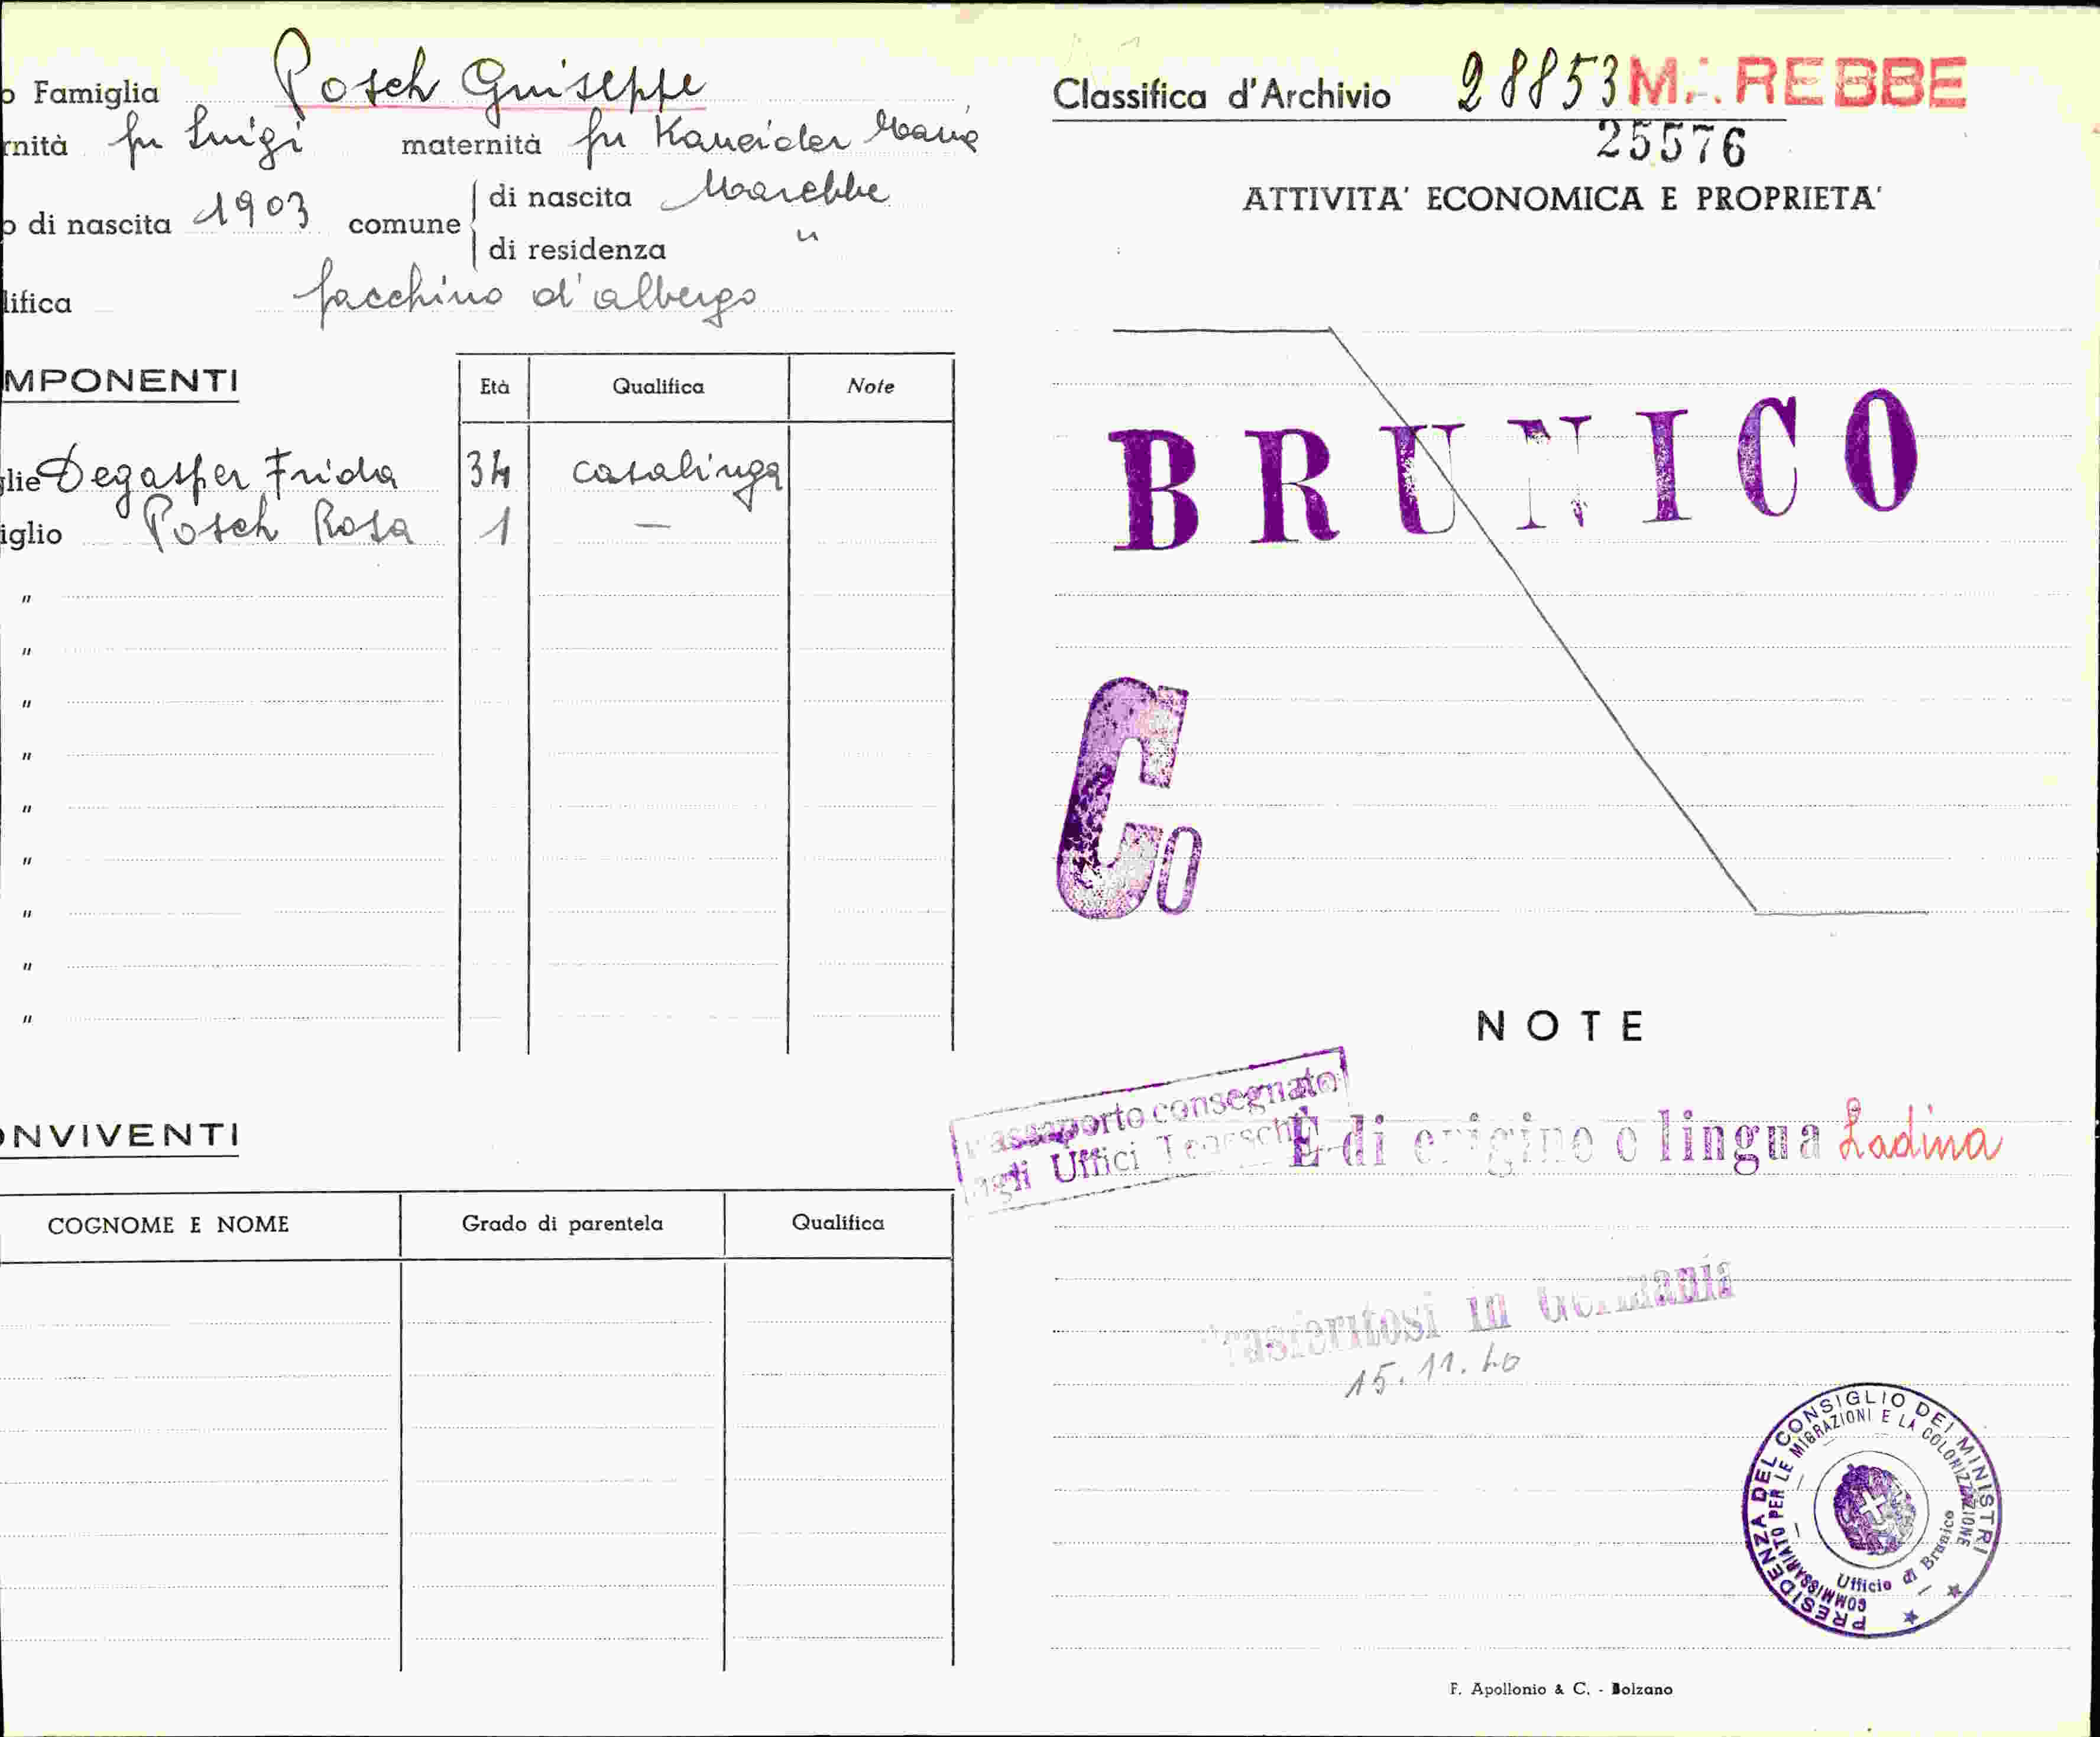 o Famiglia Posch Giuseppe
rnità fu Luigi maternità fu Kaneider Maria
o di nascita 1903 comune di nascita Marebbe
di residenza "
lifica facchino d'albergo
MPONENTI Età Qualifica Note
glie Degasper Frida 34 casalinga
iglio Posch Rosa 1 —
"
"
"
"
"
"
"
"
"
ONVIVENTI
COGNOME E NOME Grado di parentela Qualifica
Classifica d'Archivio 28853 MAREBBE
25576
ATTIVITA' ECONOMICA E PROPRIETA'
BRUNICO
Co
NOTE
Passaporto consegnato
agli Uffici Tedeschi
È di origine o lingua Ladina
Trasferitosi in Germania
15.11.40
PRESIDENZA DEL CONSIGLIO DEI MINISTRI
COMMISSARIATO PER LE MIGRAZIONI E LA COLONIZZAZIONE
Ufficio di Brunico
F. Apollonio & C. - Bolzano